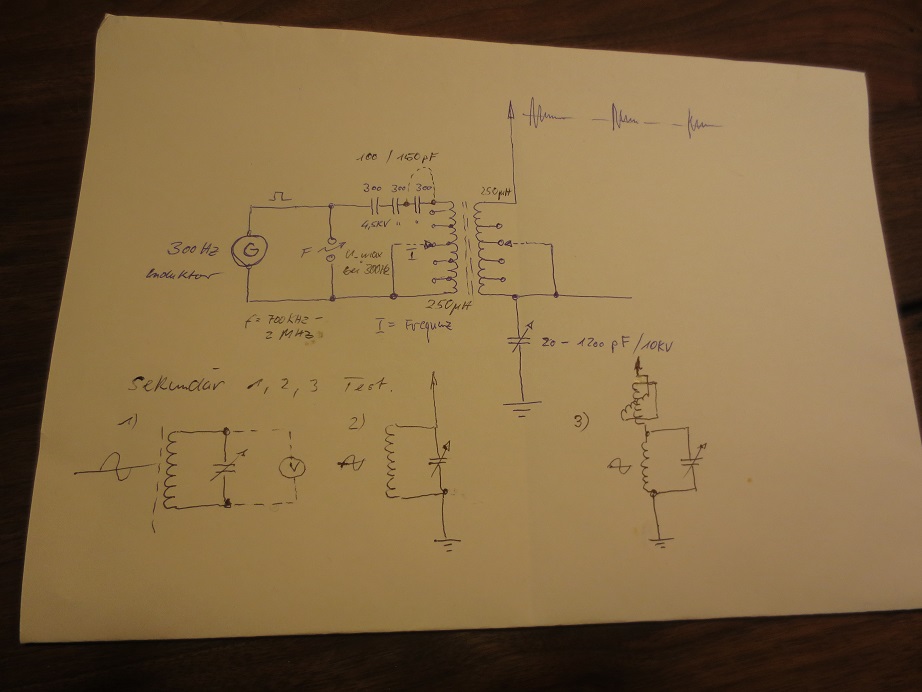 100 / 150pF
300 300 300
4,5KV " "
250µH
300Hz
Induktor
G
F
U_max
bei 300Hz
I
250µH
f = 700kHz -
2 MHz
I = Frequenz
20 - 1200 pF / 10KV
Sekundär 1, 2, 3 Test.
1)
2)
3)
V